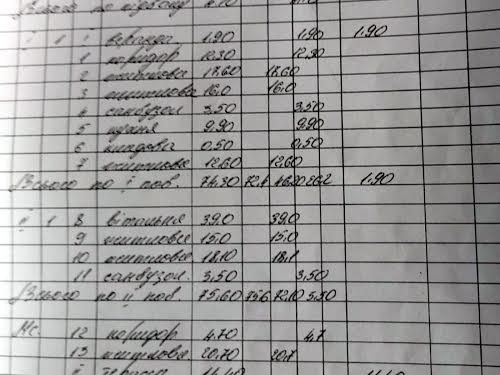 Всього по підвалу
І 1 І веранда 1.90 1.90 1.90
1 коридор 12.30 12.30
2 житлова 17.60 17.60
3 житлова 16.0 16.0
4 санвузол 3,50 3,50
5 кухня 9.90 9.90
6 кладова 0,50 0,50
7 житлова 12.60 12.60
Всього по І пов. 74,30 46.20 1.90
ІІ 1 8 вітальня 39.0 39.0
9 житлове 15.0 15.0
10 житлове 18.10 18.1
11 санвузол. 3,50 3,50
Всього по ІІ пов. 75.60 75.6 72.10 3,50
Мс. 12 коридор 4.70 4.7
13 житлове 20,70 20.7